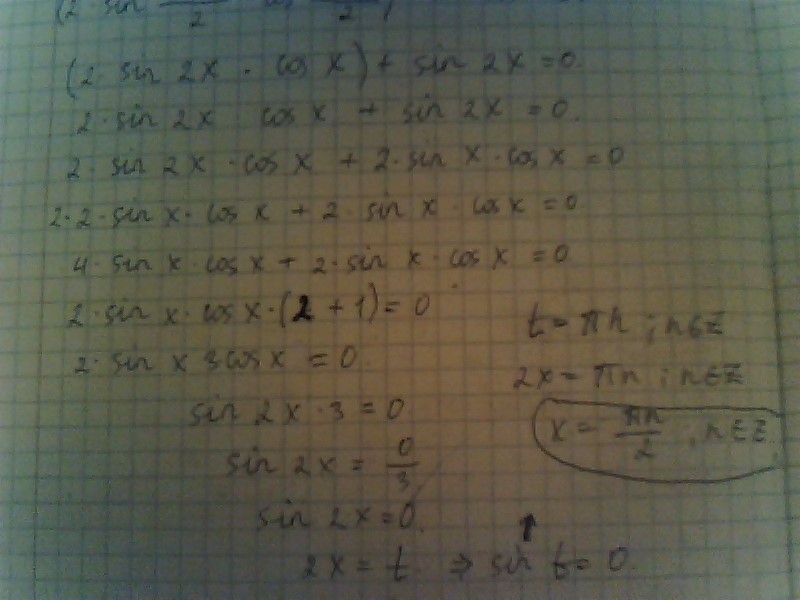 (2 · sin
2
2
(2 · sin 2x · cos x) + sin 2x = 0.
2 · sin 2x cos x + sin 2x = 0.
2 · sin 2x · cos x + 2 · sin x · cos x = 0
2 · 2 · sin x · cos x + 2 · sin x · cos x = 0.
4 · sin x · cos x + 2 · sin x · cos x = 0
2 · sin x · cos x · (2 + 1) = 0
2 · sin x 3cos x = 0.
sin 2x · 3 = 0.
sin 2x = 0/3
sin 2x = 0.
2x = t. ⇒ sin t = 0.
↑
t = πn ; n∈Z
2x = πn ; n∈Z
x = πn/2 , n∈Z